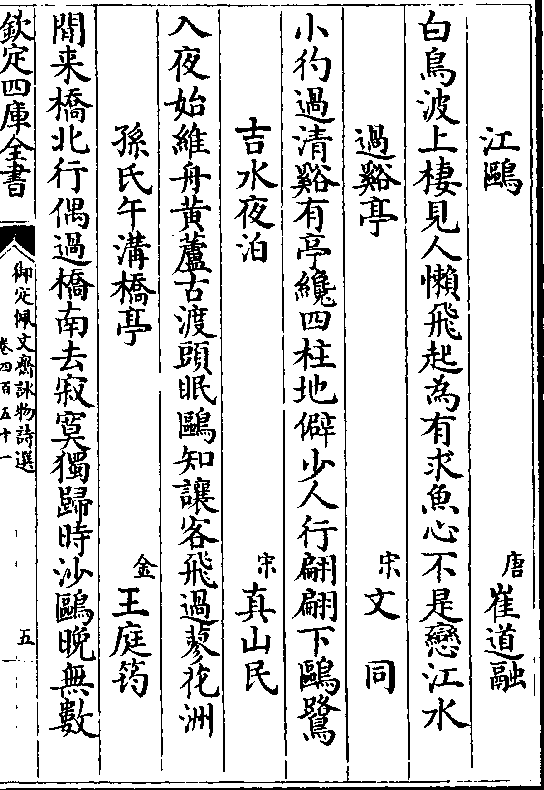 江鷗 唐 崔道融
白鳥波上棲見人懶飛起為有求魚心不是戀江水
過谿亭 宋 文同
小彴過清谿有亭纔四柱地僻少人行翩翩下鷗鷺
吉水夜泊 宋 真山民
入夜始維舟黃蘆古渡頭眠鷗知讓客飛過蓼花洲
孫氏午溝橋亭 金 王庭筠
閒来橋北行偶過橋南去寂寞獨歸時沙鷗晚無數
欽定四庫全書 御定佩文齋詠物詩選 卷四百五十一 五